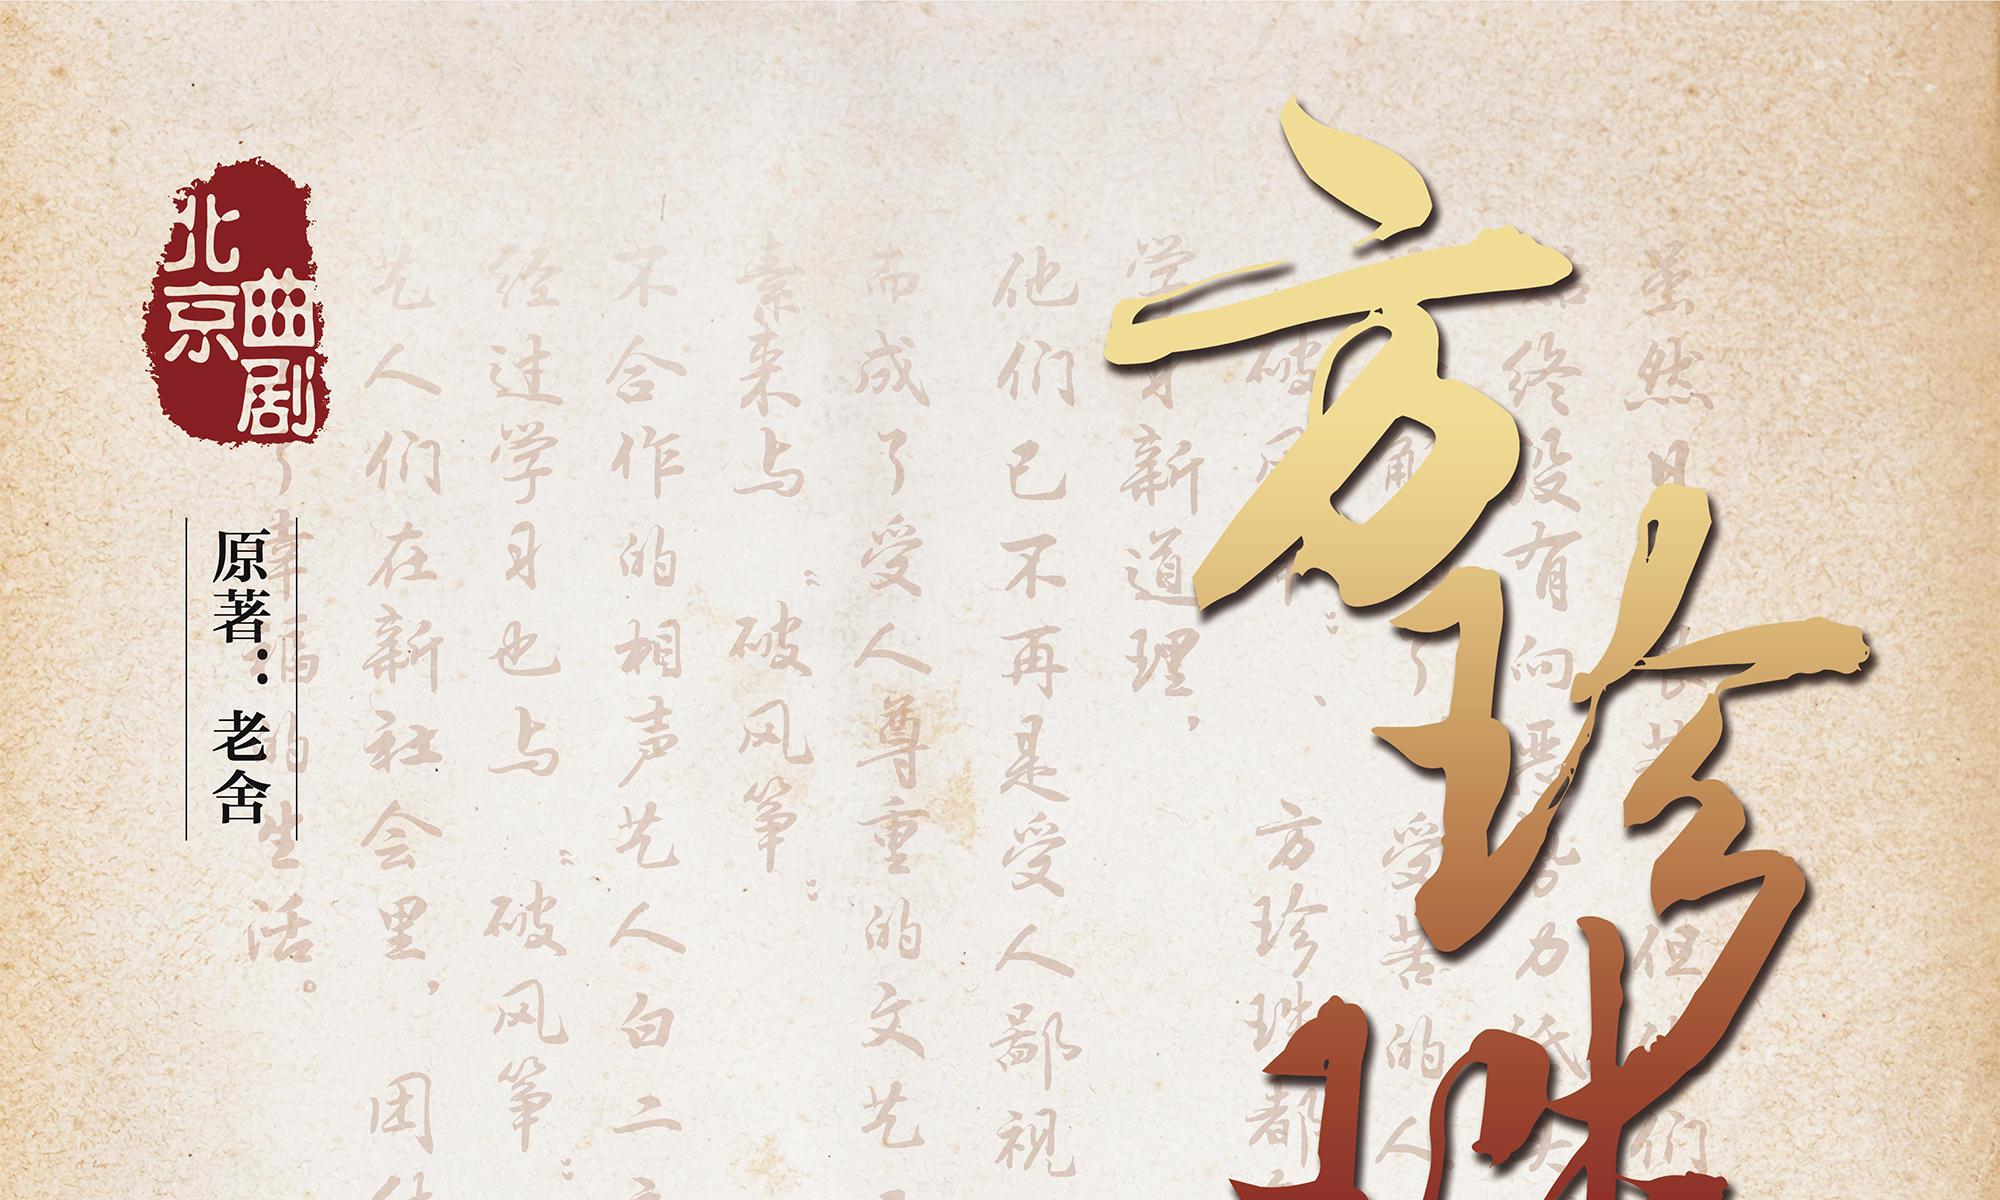 方珍珠
北京
曲剧
原著：老舍
虽然 但 们
终没有向恶势力低头
受苦的人
破风筝”、方珍珠都
学习新道理，
他们已不再是受人鄙视
而成了受人尊重的文艺
素来与“破风筝”
不合作的相声艺人白二
经过学习也与“破风筝”
艺人们在新社会里，团
了幸福的生活。